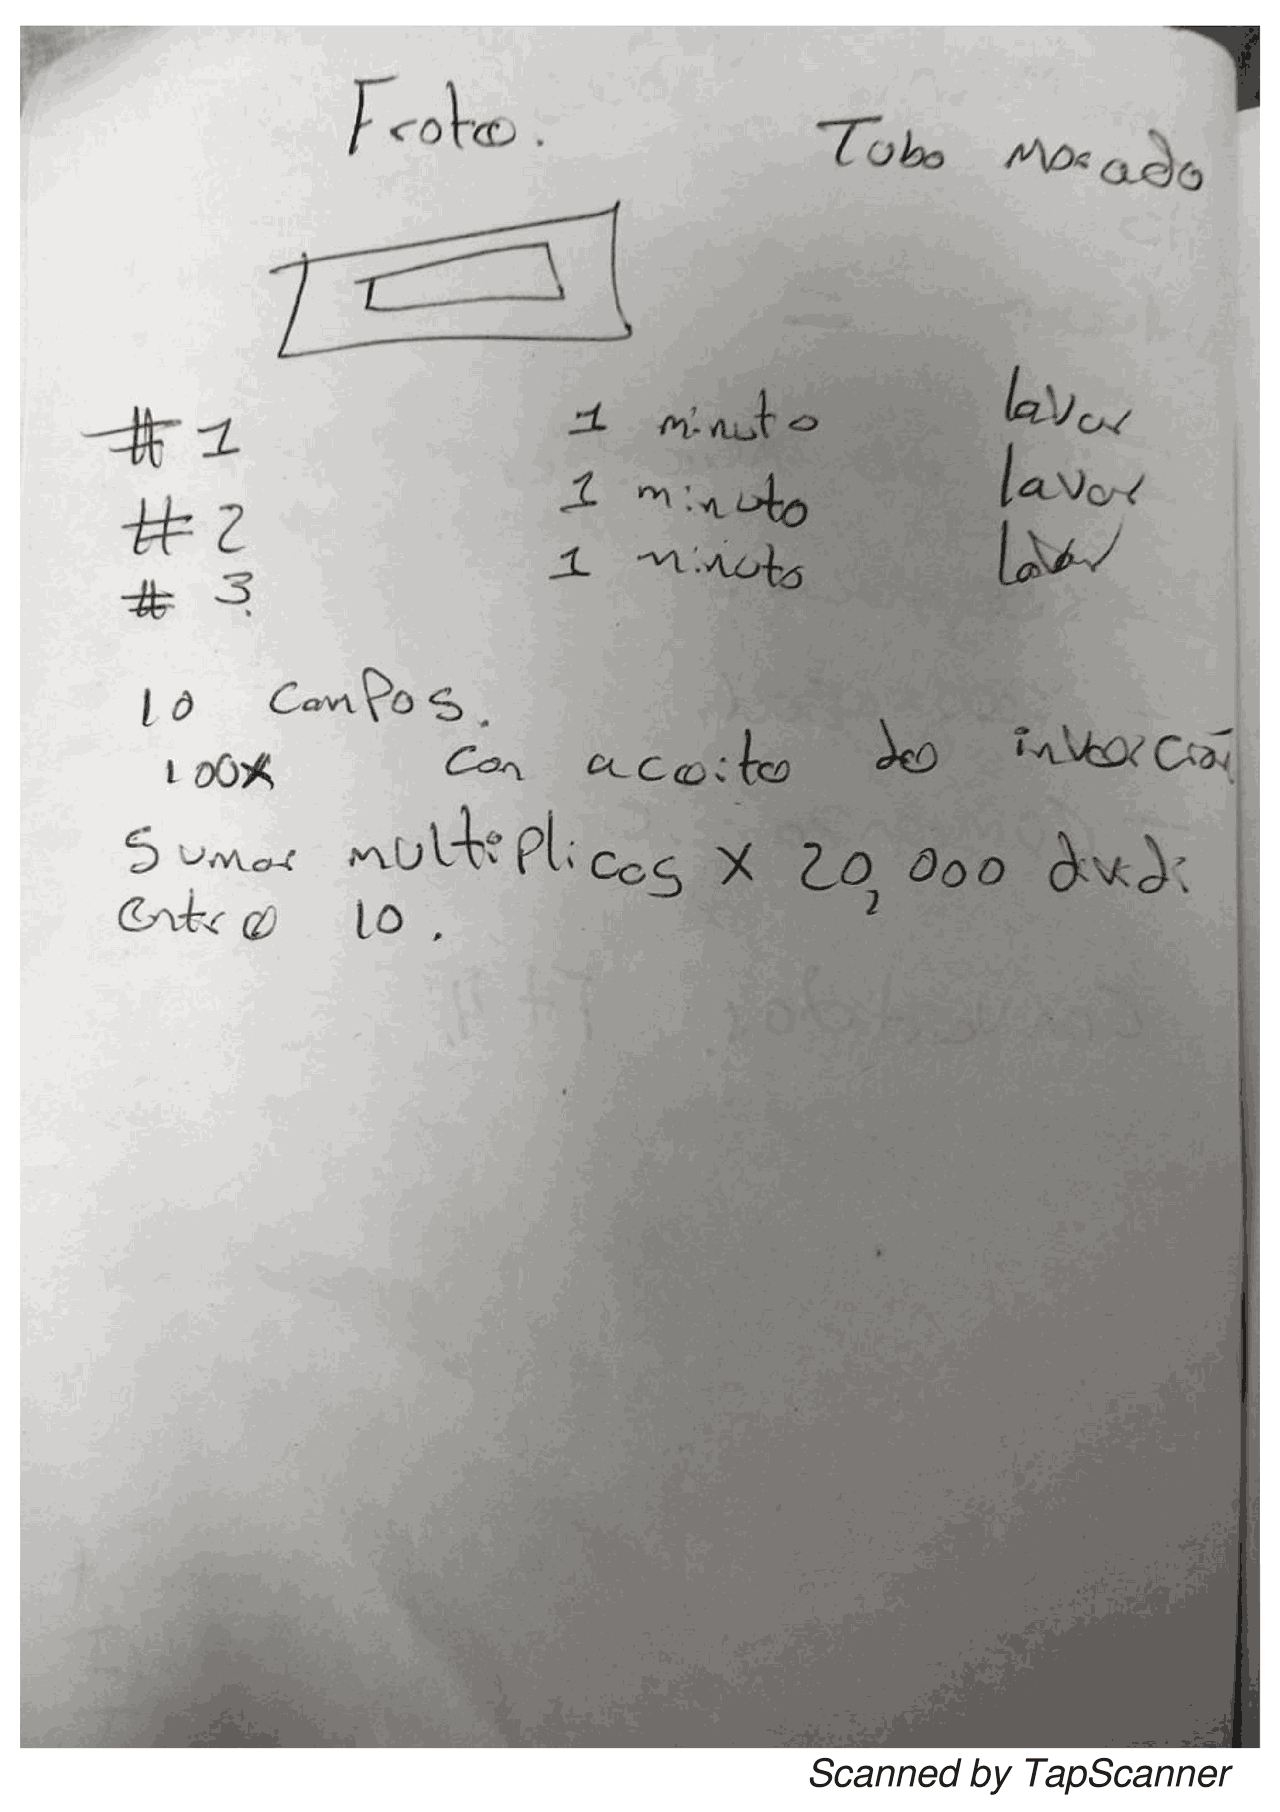 Frote. Tubo morado
#1 1 minuto lavar
#2 1 minuto lavar
#3. 1 minuto lavar
10 Campos.
100X Con aceite de inverción
Sumar multiplicas X 20,000 divdi
entre 10.
Scanned by TapScanner